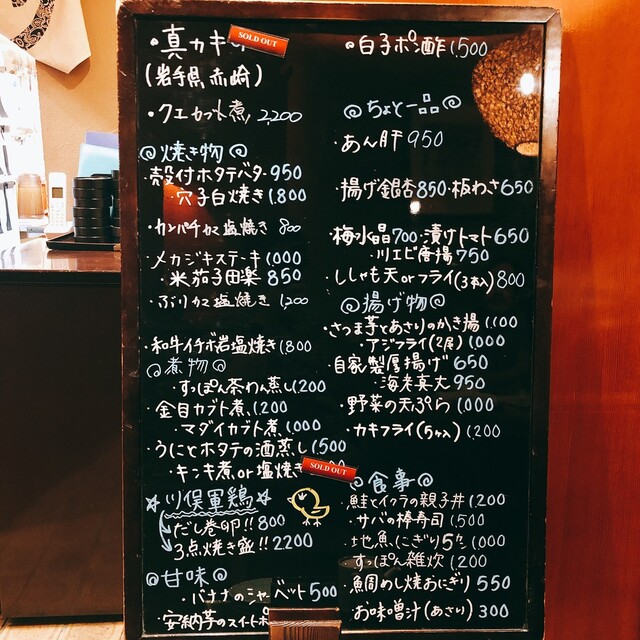 ・真カキ
SOLD OUT
(岩手県赤崎)
・クエカブト煮 2,200
◎焼き物◎
・殻付ホタテバター 950
・穴子白焼き 1,800
・カンパチカマ塩焼き 800
・メカジキステーキ 1,000
・米茄子田楽 850
・ぶりカマ塩焼き 1,200
・和牛イチボ岩塩焼き 1,800
◎煮物◎
・すっぽん茶わん蒸し 1,200
・金目カブト煮 1,200
・マダイカブト煮 1,000
・うにとホタテの酒蒸し 1,500
・キンキ煮or塩焼き
SOLD OUT
☆川俣軍鶏☆
だし巻卵!! 800
3点焼き盛!! 2200
◎甘味◎
・バナナのシャーベット 500
・安納芋のスイートポ
◎白子ポン酢 1,500
◎ちょと一品◎
・あん肝 950
・揚げ銀杏 850・板わさ 650
・梅水晶 700・漬けトマト 650
・川エビ唐揚 750
・ししゃも天orフライ(3本入) 800
◎揚げ物◎
・さつま芋とあさりのかき揚 1,100
・アジフライ(2尾) 1,000
・自家製厚揚げ 650
・海老真丈 950
・野菜の天ぷら 1,000
・カキフライ(5ヶ入) 1,200
◎食事◎
・鮭とイクラの親子丼 1,200
・サバの棒寿司 1,500
・地魚にぎり5カン 1,000
・すっぽん雑炊 1,200
・鯛めし焼おにぎり 550
・お味噌汁(あさり) 300